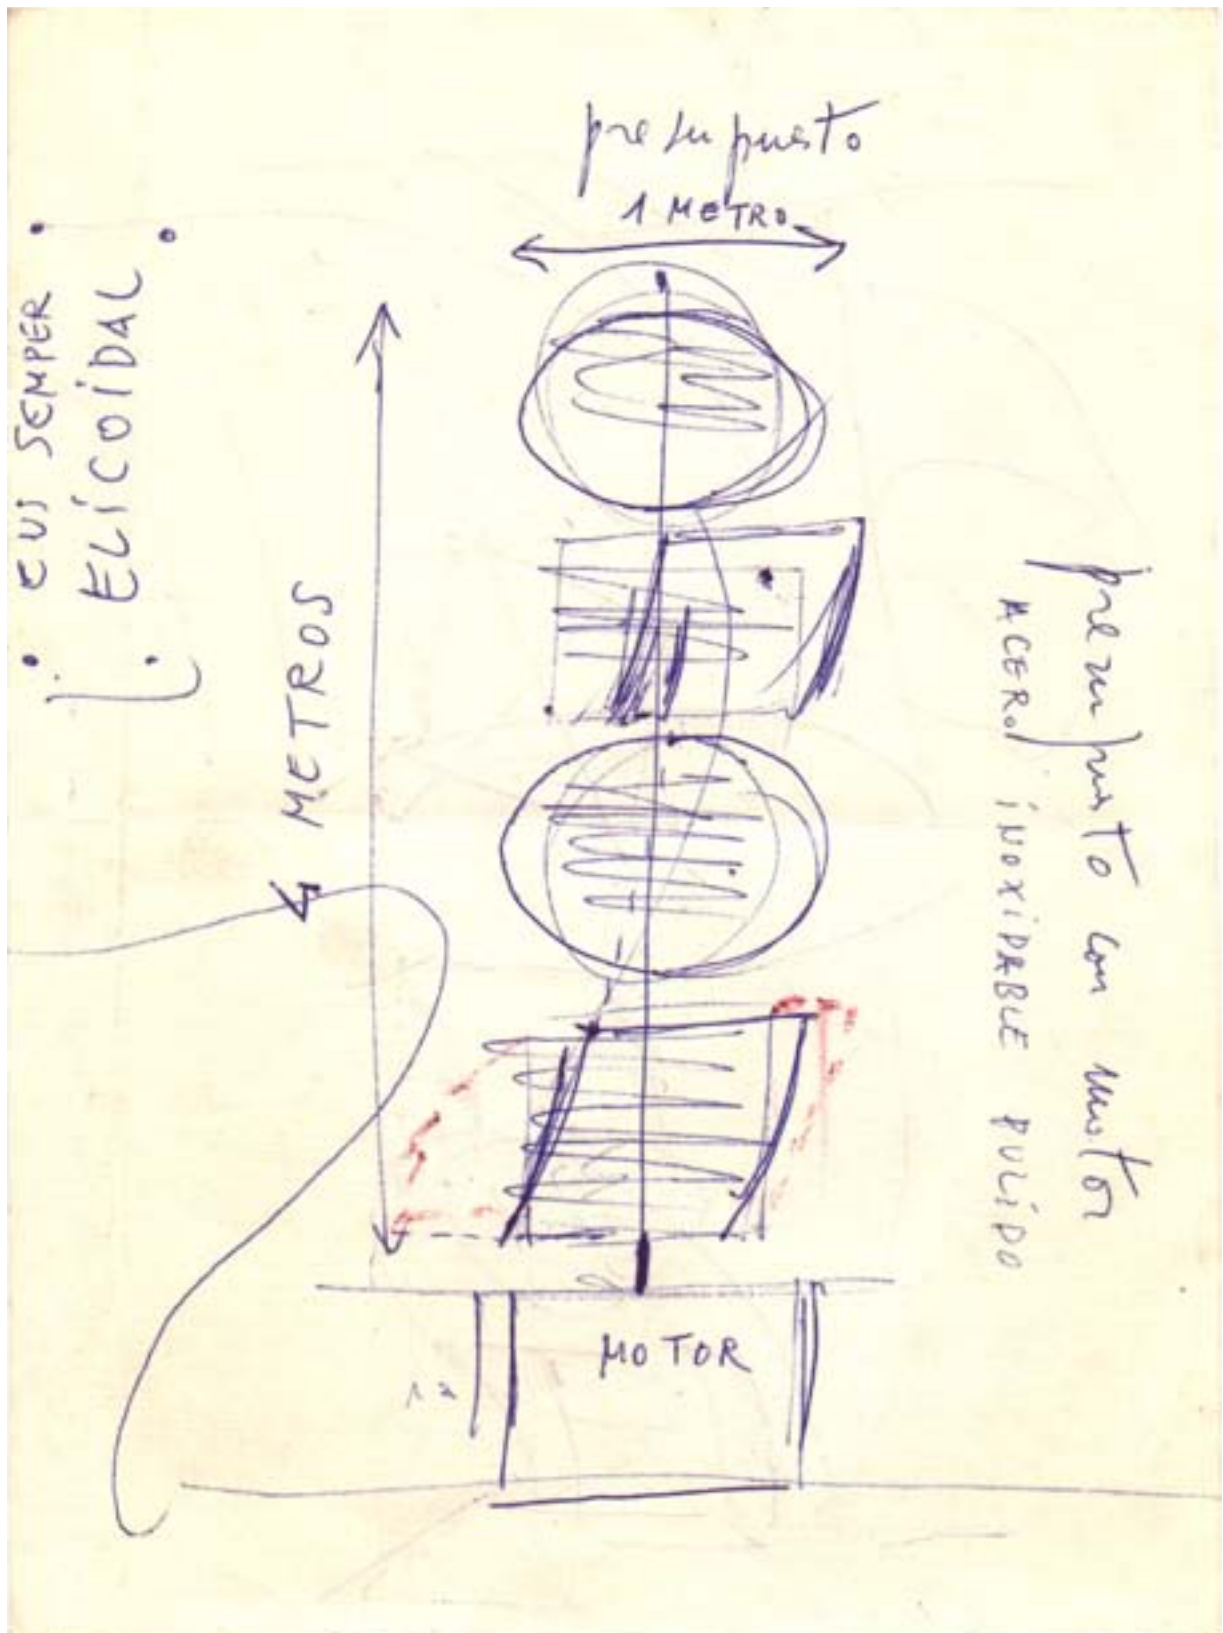 presupuesto
1 METRO
EUS SEMPER
ELÍCOÍDAL
4 METROS
presupuesto con motor
ACERO íNOXíDABLE PULíDO
MOTOR